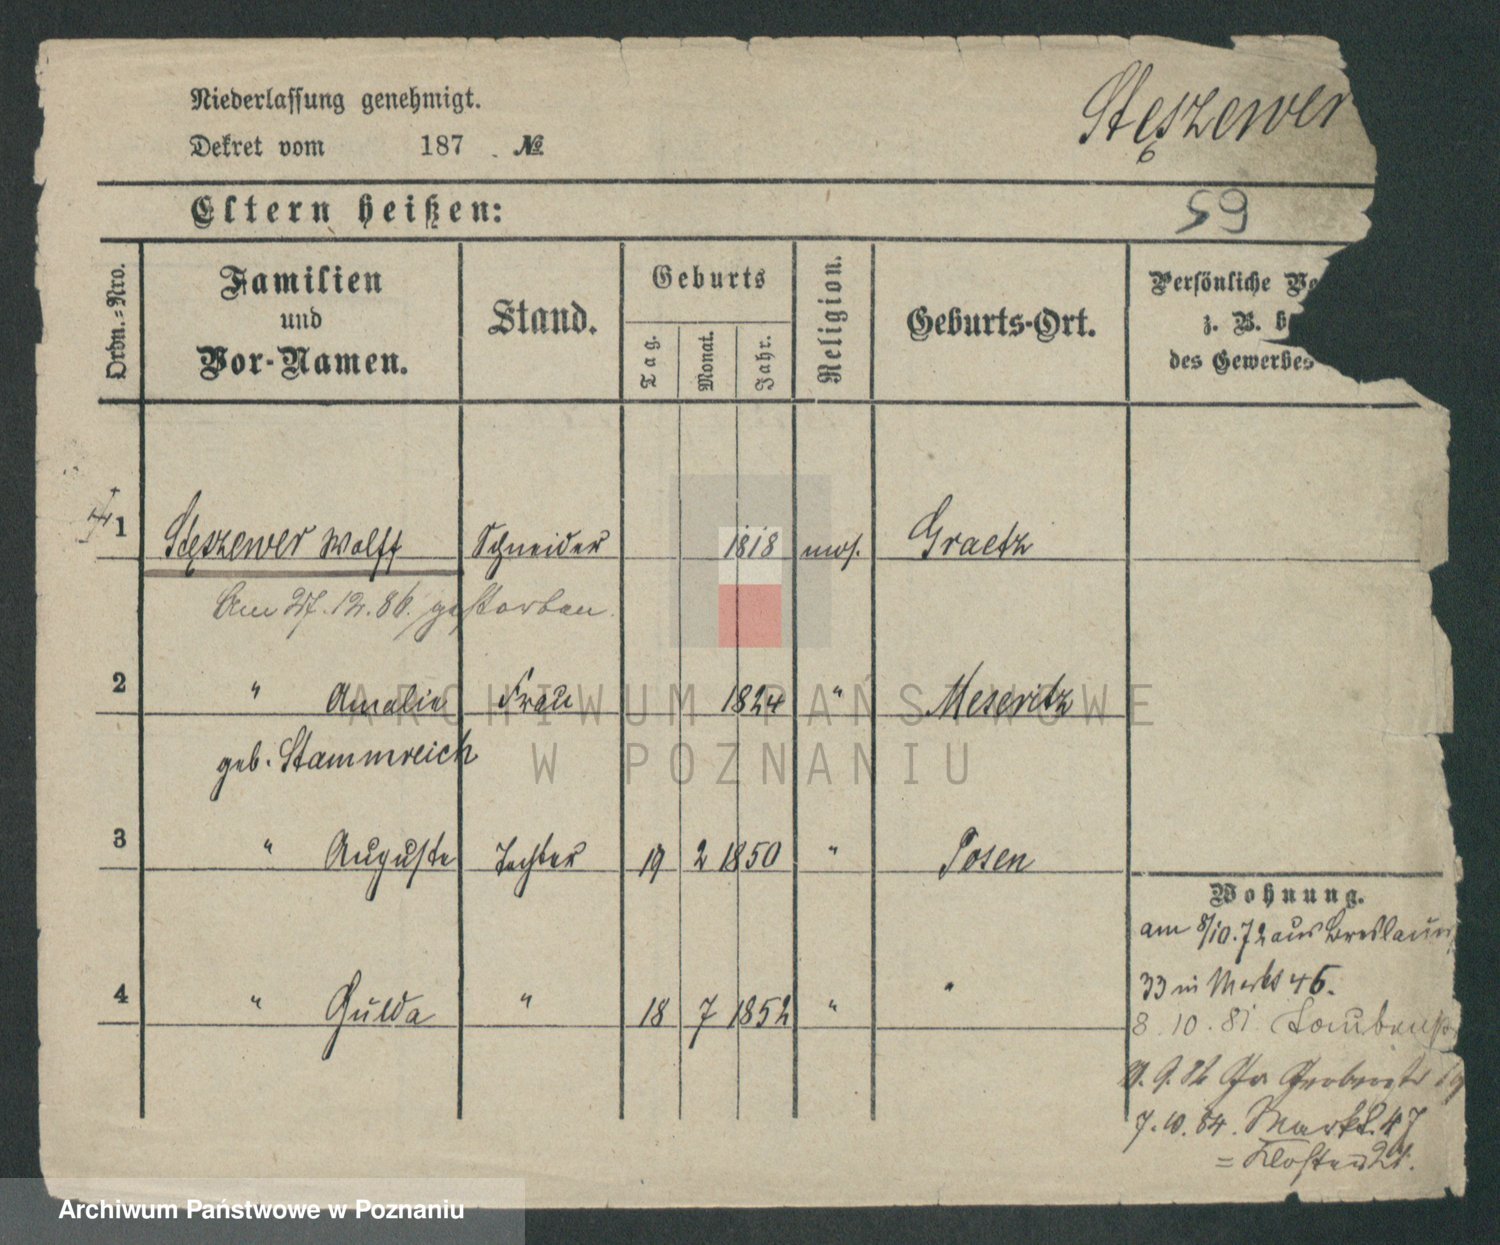 Niederlassung genehmigt.
Stęszewer
Dekret vom 187 . №
Eltern heißen:
59
Ordn.-Nro.
Familien und Vor-Namen.
Stand.
Geburts
Tag. Monat. Jahr.
Religion.
Geburts-Ort.
Persönliche
z. B.
des Gewerbes
1 Stęszewer Wolff Schneider 1818 mos. Graetz
Am 27.12.86. gestorben.
2 " Amalie Frau 1824 " Meseritz
geb. Stammreich
3 " Auguste Tochter 19 2 1850 " Posen
Wohnung.
am 8/10.72 aus Breslauer
33 in Markt 46.
4 " Hulda " 18 7 1852 " "
8.10.81
7.10.84. Markt 47
= Kloster 21.
ARCHIWUM PAŃSTWOWE
W POZNANIU
Archiwum Państwowe w Poznaniu